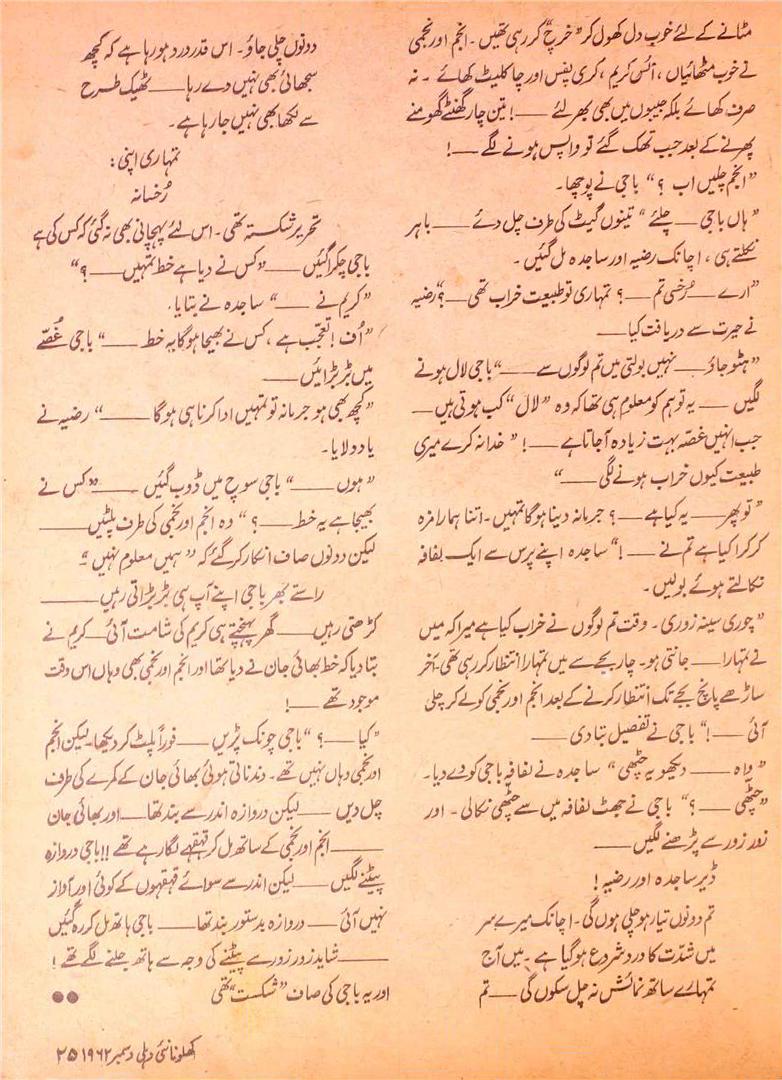 مٹانے کے لئے خوب دل کھول کر ”خرچ“ کر رہی تھیں۔ انجم اور نجمی
نے خوب مٹھائیاں، آئس کریم، کری پفس اور چاکلیٹ کھائے ۔ نہ
صرف کھائے بلکہ جیبوں میں بھی بھر لئے ——! تین چار گھنٹے گھومنے
پھرنے کے بعد جب تھک گئے تو واپس ہونے لگے ——!
”انجم چلیں اب ؟“ باجی نے پوچھا۔
”ہاں باجی —— چلئے“ تینوں گیٹ کی طرف چل دئے —— باہر
نکلتے ہی، اچانک رضیہ اور ساجدہ مل گئیں۔
”ارے —— رُخی تم ——؟ تمہاری تو طبیعت خراب تھی ——؟“ رضیہ
نے حیرت سے دریافت کیا ——
”ہٹو جاؤ —— نہیں بولتی میں تم لوگوں سے ——“ باجی لال ہونے
لگیں —— یہ تو ہم کو معلوم ہی تھا کہ وہ ”لال“ کب ہوتی ہیں ——
جب انہیں غصہ بہت زیادہ آجاتا ہے ——! ”خدا نہ کرے میری
طبیعت کیوں خراب ہونے لگی ——“
”تو پھر —— یہ کیا ہے ——؟ جرمانہ دینا ہوگا تمہیں۔ اتنا ہمارا مزہ
کرکرا کیا ہے تم نے ——!“ ساجدہ اپنے پرس سے ایک لفافہ
نکالتے ہوئے بولیں۔
”چوری سینہ زوری۔ وقت تم لوگوں نے خراب کیا ہے میرا کہ میں
نے تمہارا —— جانتی ہو۔ چار بجے سے میں تمہارا انتظار کر رہی تھی۔ آخر
ساڑھے پانچ بجے تک انتظار کرنے کے بعد انجم اور نجمی کو لے کر چلی
آئی ——!“ باجی نے تفصیل بتا دی ——
”واہ —— دیکھو یہ چٹھی“ ساجدہ نے لفافہ باجی کو دے دیا۔
”چٹھی ——؟“ باجی نے جھٹ لفافہ میں سے چٹھی نکالی۔ اور
زور زور سے پڑھنے لگیں ——
ڈیر ساجدہ اور رضیہ!
تم دونوں تیار ہو چلی ہوں گی۔ اچانک میرے سر
میں شدّت کا درد شروع ہوگیا ہے۔ میں آج
تمہارے ساتھ نمائش نہ چل سکوں گی —— تم
دونوں چلی جاؤ۔ اس قدر درد ہو رہا ہے کہ کچھ
سجھائی بھی نہیں دے رہا —— ٹھیک طرح
سے لکھا بھی نہیں جا رہا ہے۔
تمہاری اپنی:
رُخسانہ
تحریر شکستہ تھی۔ اس لئے پہچانی بھی نہ گئی کہ کس کی ہے
باجی چکرا گئیں —— ”کس نے دیا ہے خط تمہیں ——؟“
”کریم نے ——“ ساجدہ نے بتایا۔
”اُف! تعجّب ہے، کس نے بھیجا ہوگا یہ خط ——“ باجی غُصّے
میں بڑبڑائیں ——
”کچھ بھی ہو جرمانہ تو تمہیں ادا کرنا ہی ہوگا ——“ رضیہ نے
یاد دلایا۔
”ہوں ——“ باجی سوچ میں ڈوب گئیں —— ”کس نے
بھیجا ہے یہ خط ——؟“ وہ انجم اور نجمی کی طرف پلٹیں ——
لیکن دونوں صاف انکار کر گئے کہ ”ہمیں معلوم نہیں“
راستے بھر باجی اپنے آپ ہی بڑبڑاتی رہیں ——
کڑھتی رہیں —— گھر پہنچتے ہی کریم کی شامت آئی —— کریم نے
بتا دیا کہ خط بھائی جان نے دیا تھا اور انجم اور نجمی بھی وہاں اس وقت
موجود تھے ——!
”کیا ——؟“ باجی چونک پڑیں —— فوراً پلٹ کر دیکھا۔ لیکن انجم
اور نجمی وہاں نہیں تھے۔ دندناتی ہوئی بھائی جان کے کمرے کی طرف
چل دیں —— لیکن دروازہ اندر سے بند تھا —— اور بھائی جان
—— انجم اور نجمی کے ساتھ مل کر قہقہے لگا رہے تھے!! باجی دروازہ
پیٹنے لگیں —— لیکن اندر سے سوائے قہقہوں کے کوئی اور آواز
نہیں آئی —— دروازہ بدستور بند تھا —— باجی ہاتھ مل کر رہ گئیں
—— شاید زور زور سے پیٹنے کی وجہ سے ہاتھ جلنے لگے تھے!
اور یہ باجی کی صاف ”شکست“ تھی ●●
کھلونا نئی دہلی دسمبر ۱۹۶۲ ۲۵